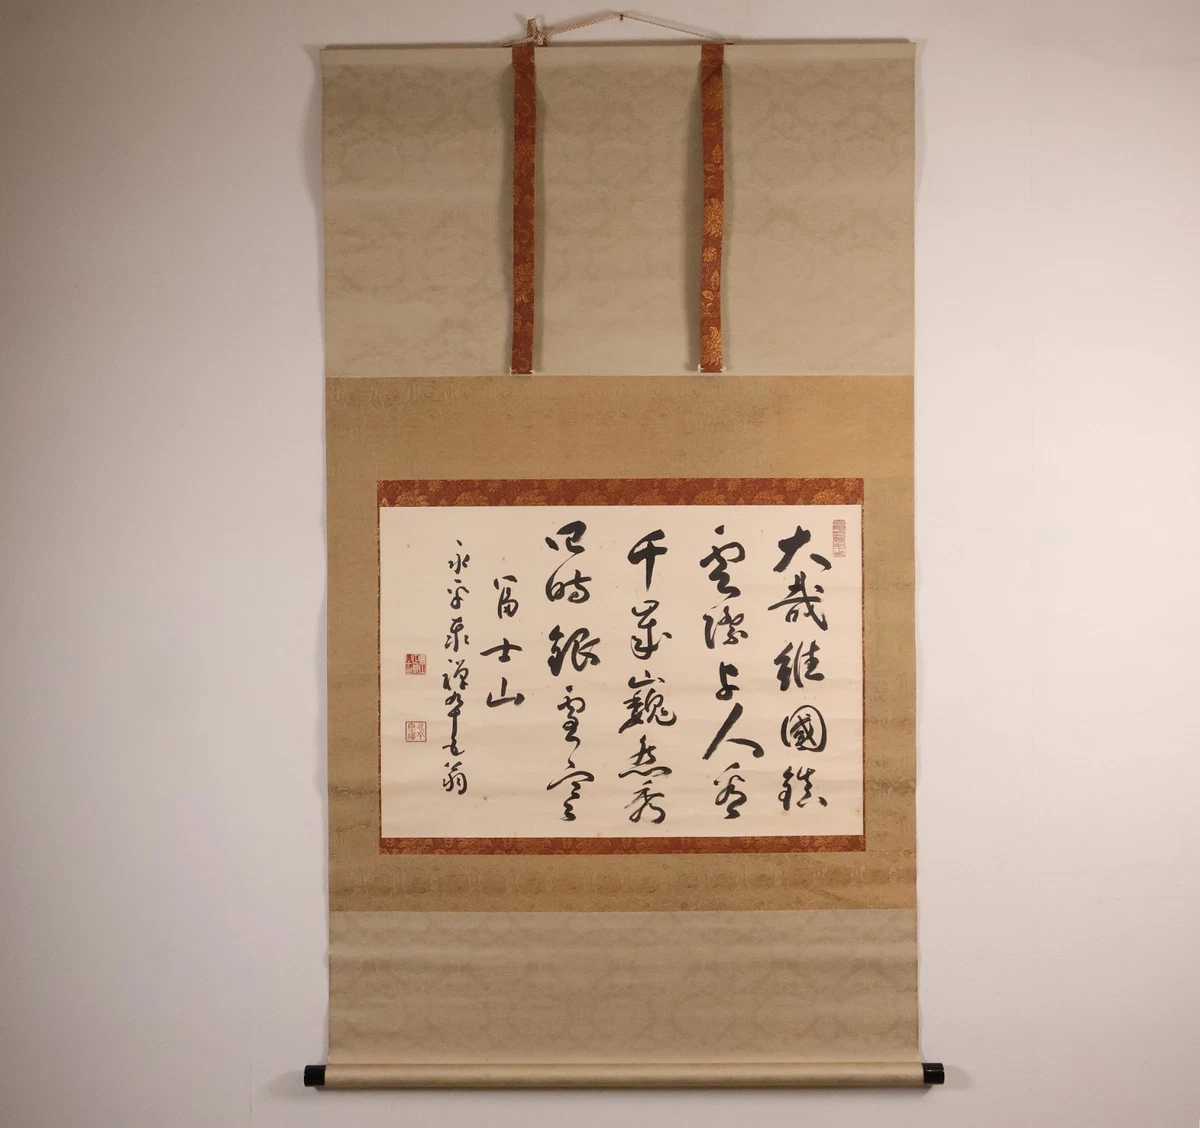 大哉維國鎮
雲際与人看
千歳巍然秀
四時銀雪寒
富士山
永平泰禅九十五翁